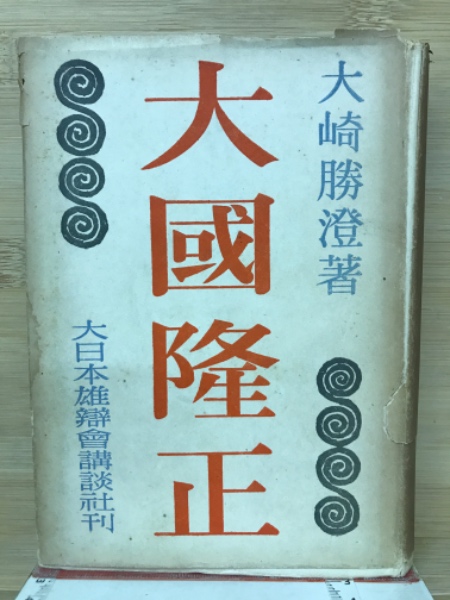 大崎勝澄著
大國隆正
大日本雄辯會講談社刊